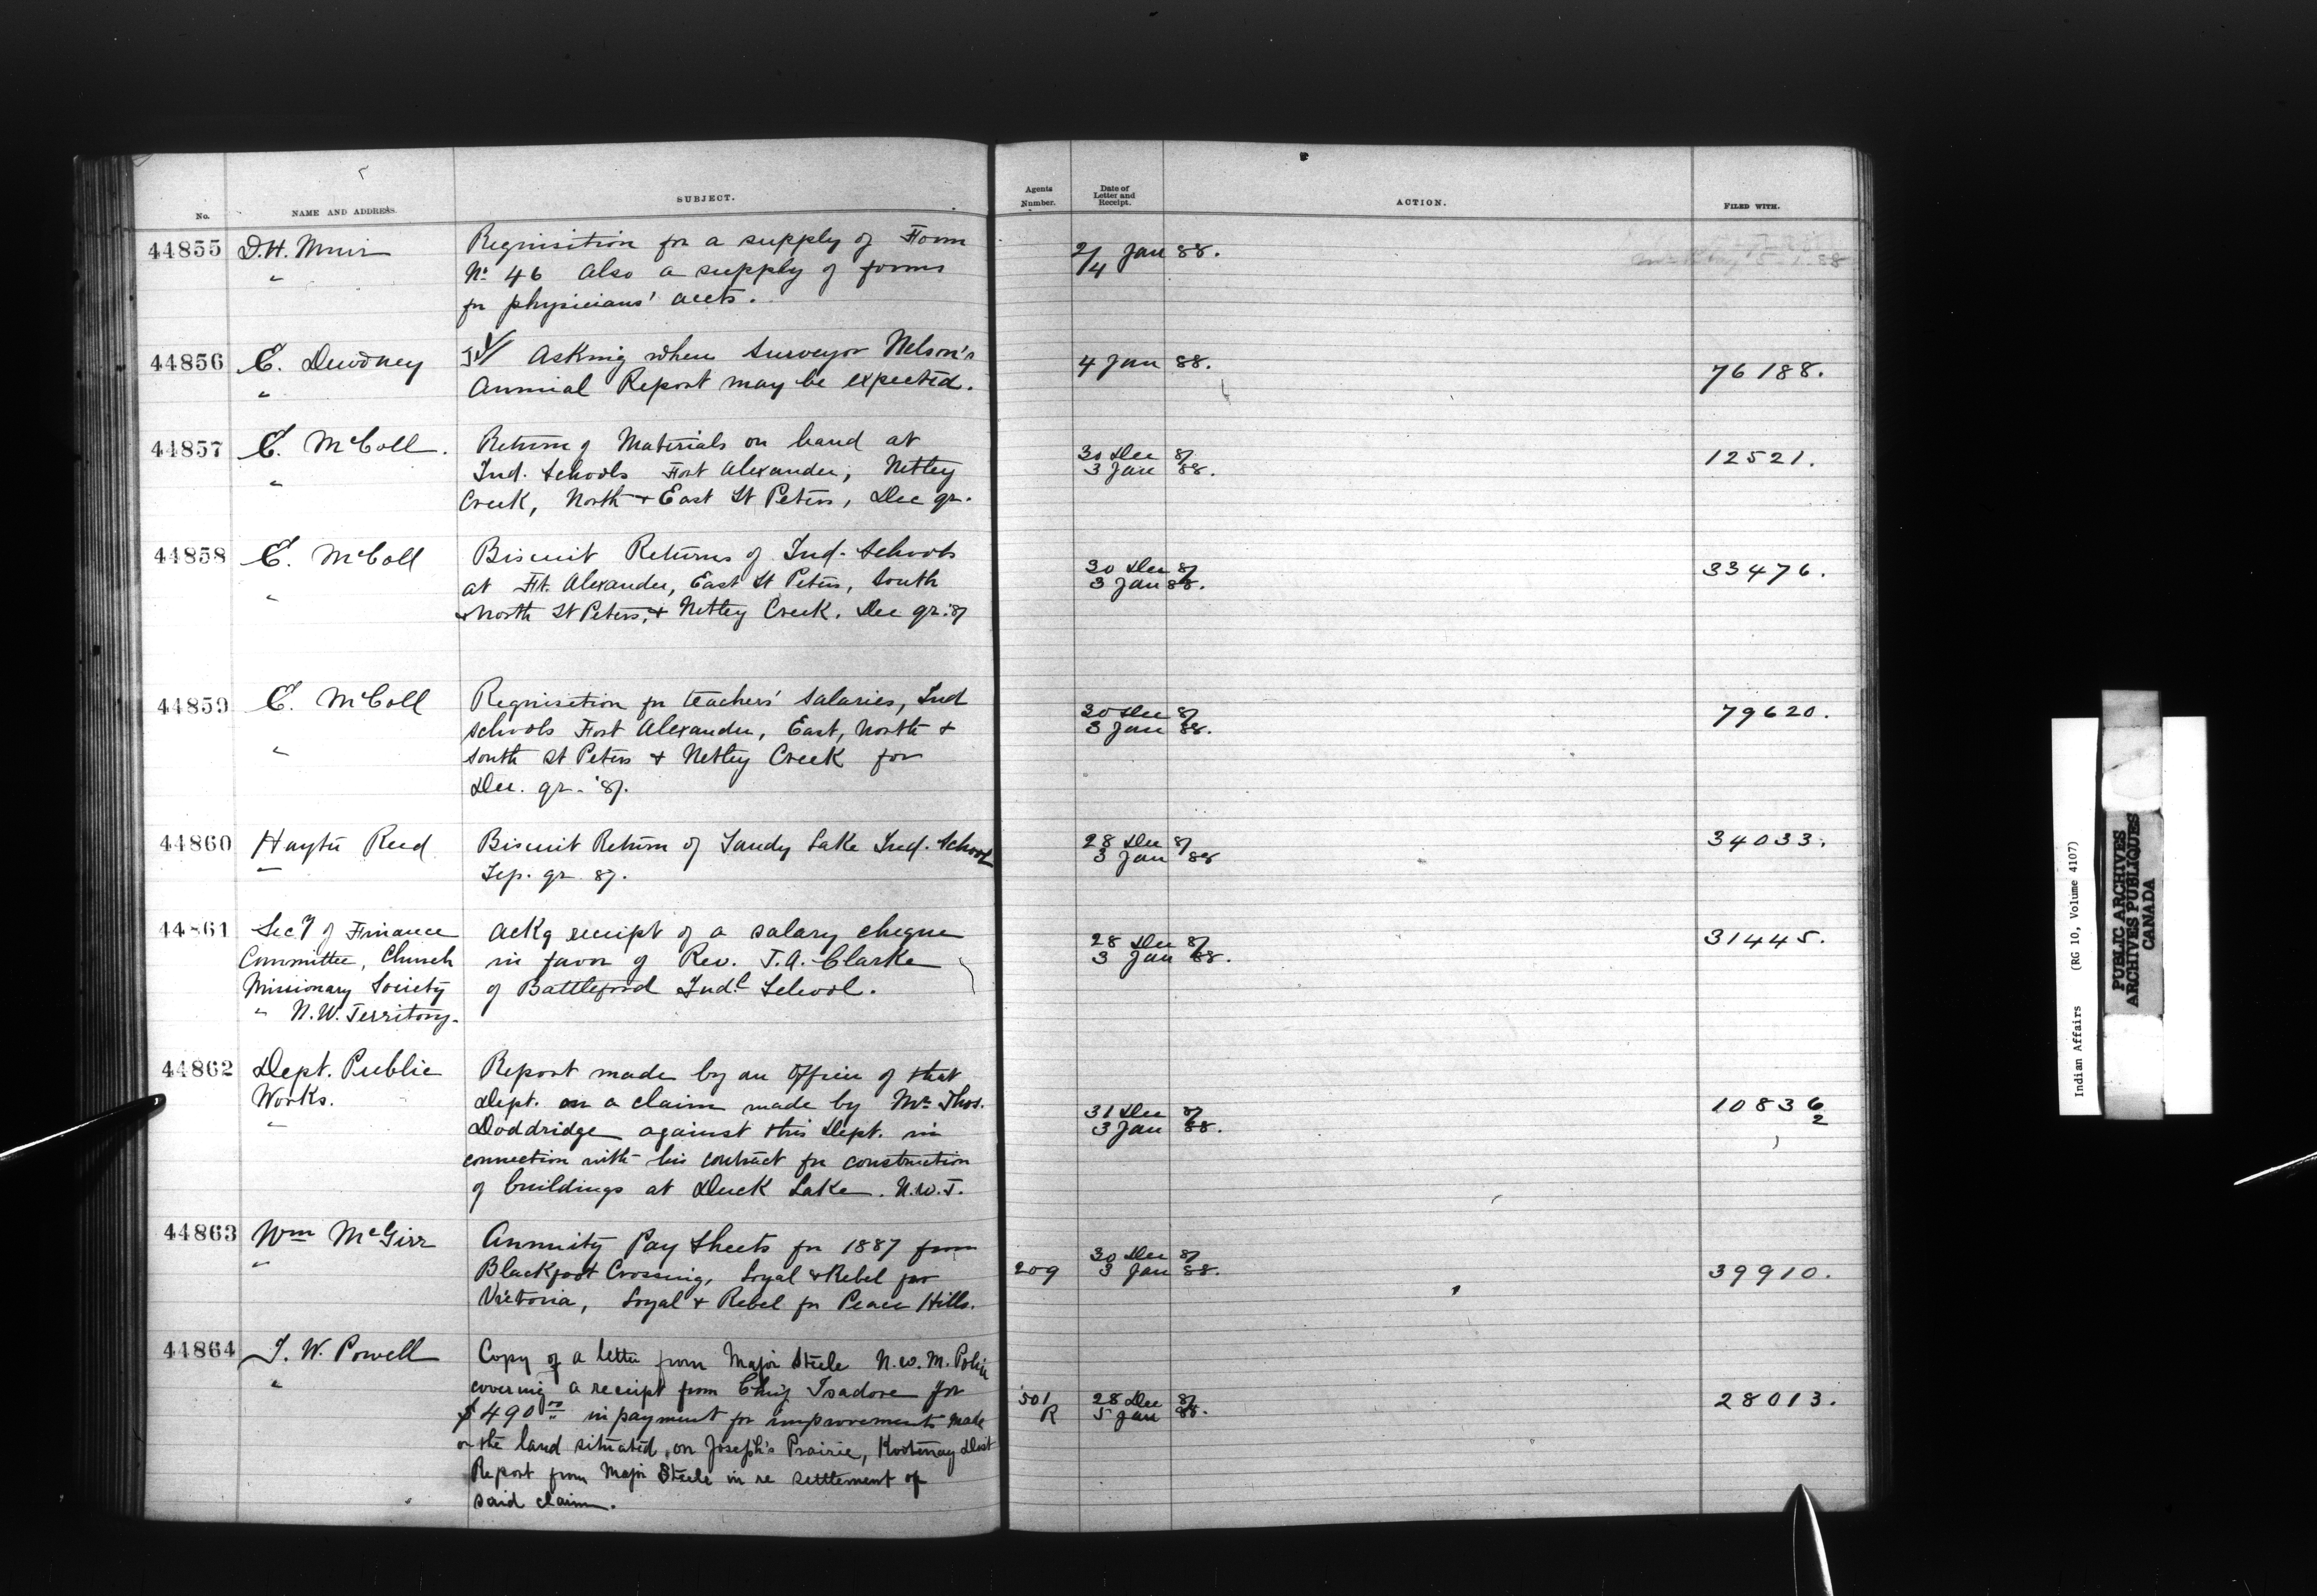 No. NAME AND ADDRESS. SUBJECT. Agents Number. Date of Letter and Receipt. ACTION. FILED WITH.
44855 D.H. Muir Requisition for a supply of Form 2/4 Jan 88.
" No 46 Also a supply of forms
for physicians' accts.
44856 E. Dewdney Asking when Surveyor Nelson's 4 Jan 88. 76188.
" Annual Report may be expected.
44857 E. McColl. Return of Materials on hand at 30 Dec 87 12521.
" Ind. Schools Fort Alexander, Netley 3 Jan 88.
Creek, North + East St Peters, Dec qr.
44858 E. McColl Biscuit Returns of Ind. Schools 30 Dec 87 33476.
" at Ft. Alexander, East St Peters, South 3 Jan 88.
+ North St Peters, + Netley Creek. Dec qr. '87
44859 E. McColl Requisition for teachers' salaries, Ind 30 Dec 87 79620.
schools Fort Alexander, East, North + 3 Jan 88.
" South St Peters + Netley Creek for
Dec. qr. '87.
44860 Hayter Reed Biscuit Return of Sandy Lake Ind. School 28 Dec 87 34033.
" Sep. qr 87. 3 Jan 88
44861 Secy of Finance Ackg receipt of a salary cheque 28 Dec 87 31445.
Committee, Church in favor of Rev. T.A. Clarke 3 Jan 88.
Missionary Society of Battleford Indl School.
" N.W. Territory.
44862 Dept. Public Report made by an Officer of that
Works. Dept. on a claim made by Mr Thos. 31 Dec 87 10836/2
" Doddridge against this Dept. in 3 Jan 88.
connection with his contract for construction
of buildings at Duck Lake. N.W.T.
44863 Wm McGirr Annuity Pay Sheets for 1887 from 30 Dec 87
" Blackfoot Crossing, Loyal + Rebel for 209 3 Jan 88. 39910.
Victoria, Loyal + Rebel for Peace Hills.
44864 I. W. Powell Copy of a letter from Major Steele N.W.M. Police
" covering a receipt from Chief Isadore for 501 28 Dec 87 28013.
$490 00 in payment for improvements made R 5 Jan 88.
on the land situated on Joseph's Prairie, Kootenay Dist
Report from Major Steele in re settlement of
said claim.
Indian Affairs (RG 10, Volume 4107)
PUBLIC ARCHIVES
ARCHIVES PUBLIQUES
CANADA